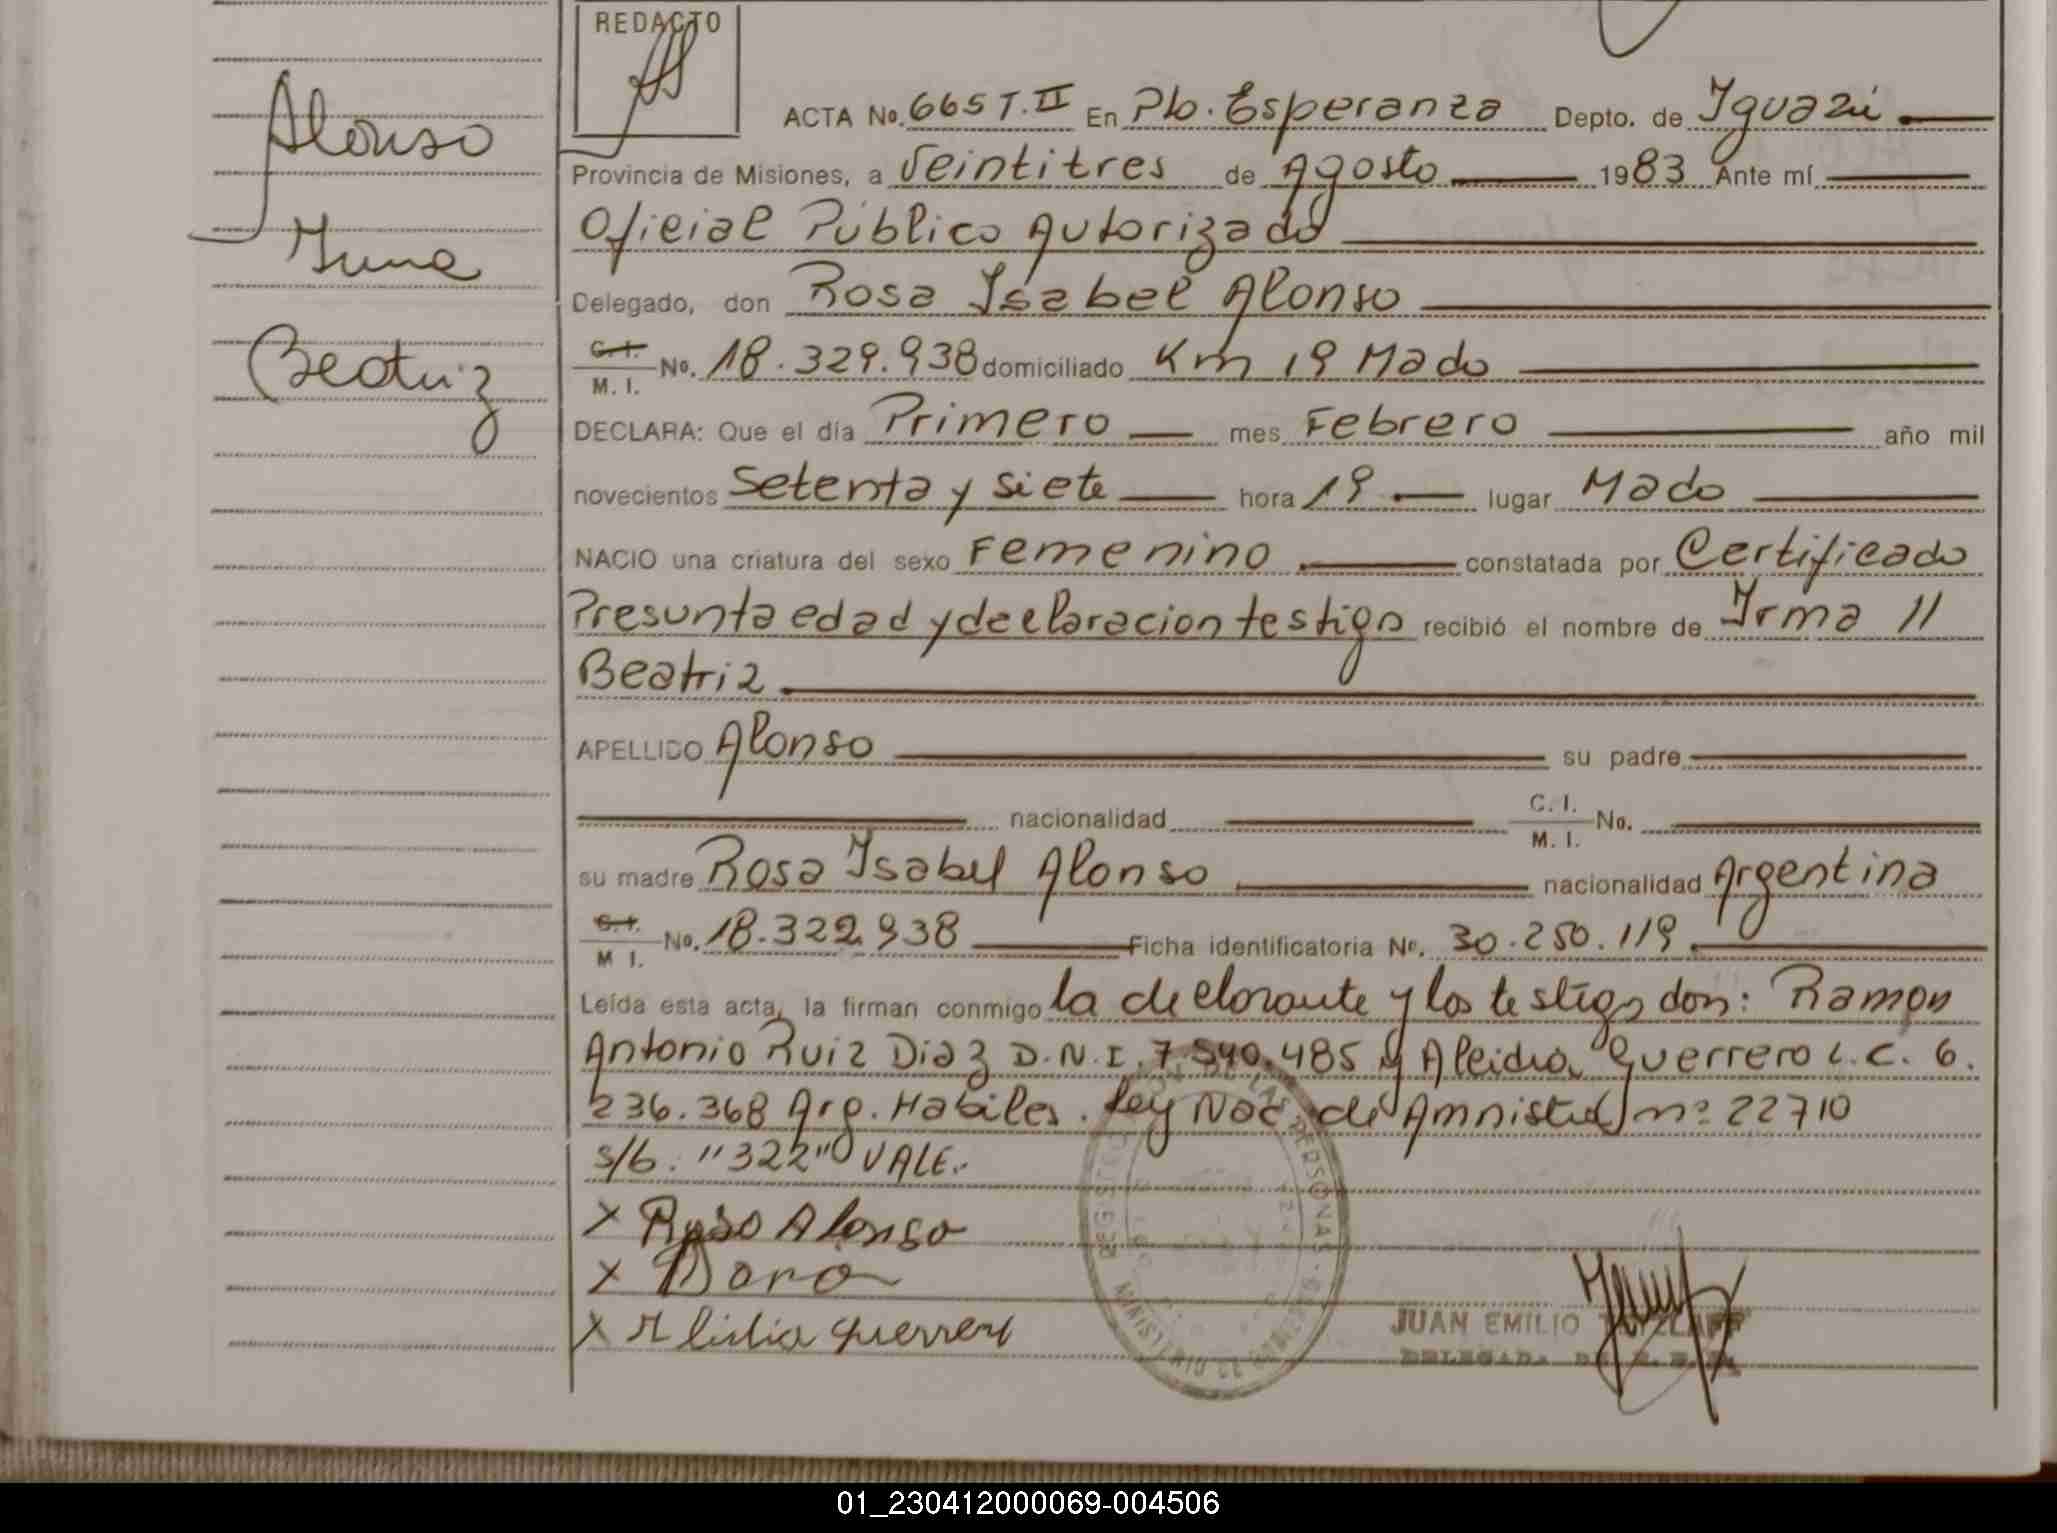 REDACTO
Alonso
Irma
Beatriz
ACTA No. 665 T. II En Pto. Esperanza Depto. de Iguazú
Provincia de Misiones, a Veintitres de Agosto 1983 Ante mí
Oficial Público Autorizado
Delegado, don Rosa Isabel Alonso
C. I. / M. I. No. 18.329.938 domiciliado Km 19 Mado
DECLARA: Que el día Primero mes Febrero año mil
novecientos Setenta y siete hora 19 lugar Mado
NACIO una criatura del sexo Femenino constatada por Certificado
Presunta edad y declaracion testigo recibió el nombre de Irma //
Beatriz
APELLIDO Alonso su padre
nacionalidad C. I. / M. I. No.
su madre Rosa Isabel Alonso nacionalidad Argentina
C. I. / M I. No. 18.322.938 Ficha identificatoria No. 30.250.119
Leída esta acta, la firman conmigo la declorante y los testigo don: Ramon
Antonio Ruiz Diaz D.N.I. 7.540.485 y Aleidia Guerrero L.C. 6.
236.368 Arg. Habiles. Ley Nac de Amnistia nº 22710
s/b. "322" VALE.
X Roso Alonso
X
X Guerrero
JUAN EMILIO
DELEGADO
01_230412000069-004506